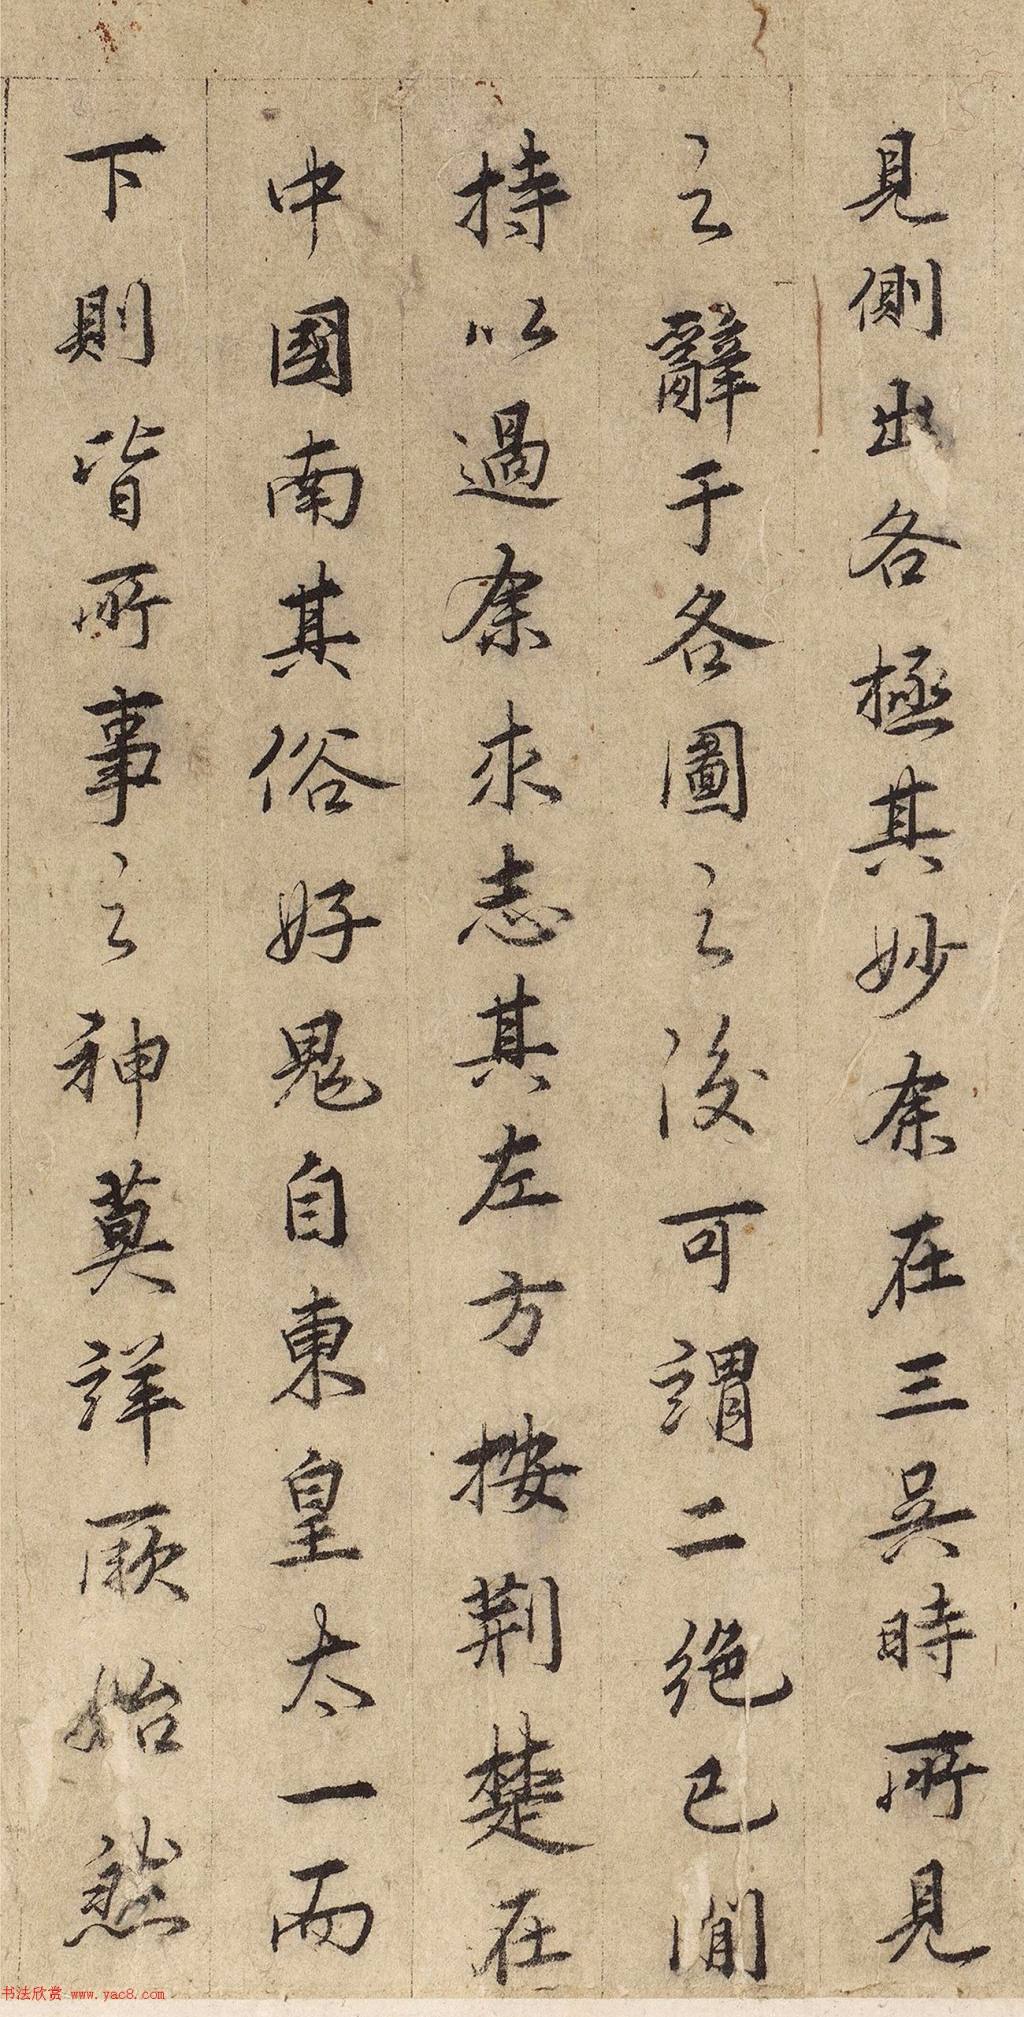 見側出各極其妙余在三吳時所見
之辭于各圖之後可謂二絕已間
持以過余求志其左方按荊楚在
中國南其俗好鬼自東皇太一而
下則皆所事之神莫詳厥始然
书法欣赏 www.yac8.com